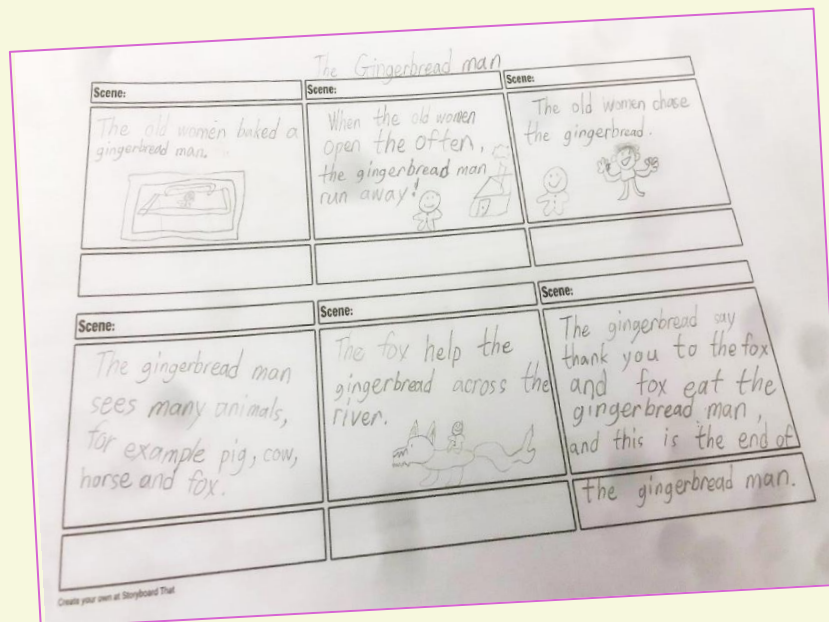 The Gingerbread man
Scene:
The old women baked a
gingerbread man.
Scene:
When the old women
open the often,
the gingerbread man
run away!
Scene:
The old women chase
the gingerbread.
Scene:
The gingerbread man
sees many animals,
for example pig, cow,
horse and fox.
Scene:
The fox help the
gingerbread across the
river.
Scene:
The gingerbread say
thank you to the fox
and fox eat the
gingerbread man,
and this is the end of
the gingerbread man.
Create your own at Storyboard That